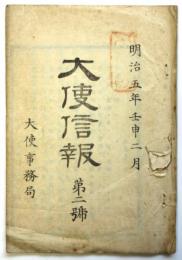 明治五年壬申二月
大使信報 第二號
大使事務局